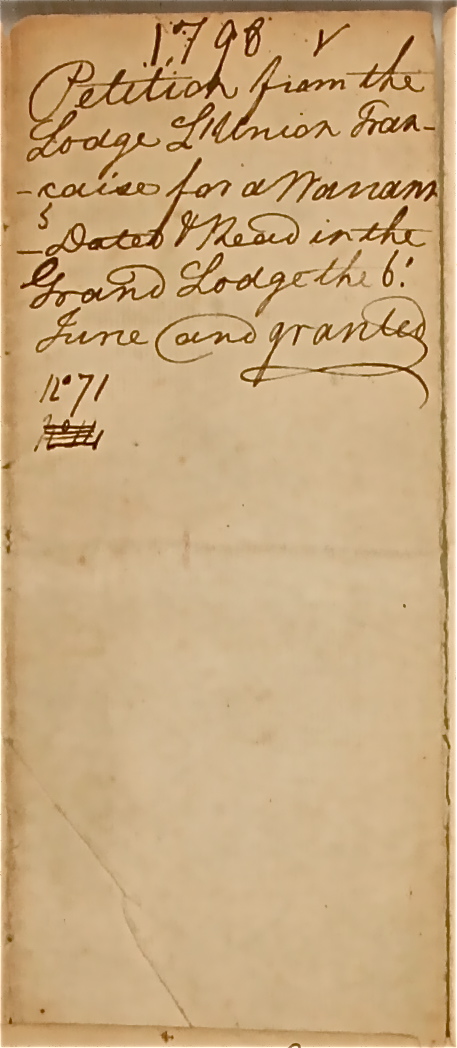 1798 √
Petition from the
Lodge L'Union Fran-
-caise for a Warrann
- Dated & Read in the
Grand Lodge the 6!
June and granted
No 71